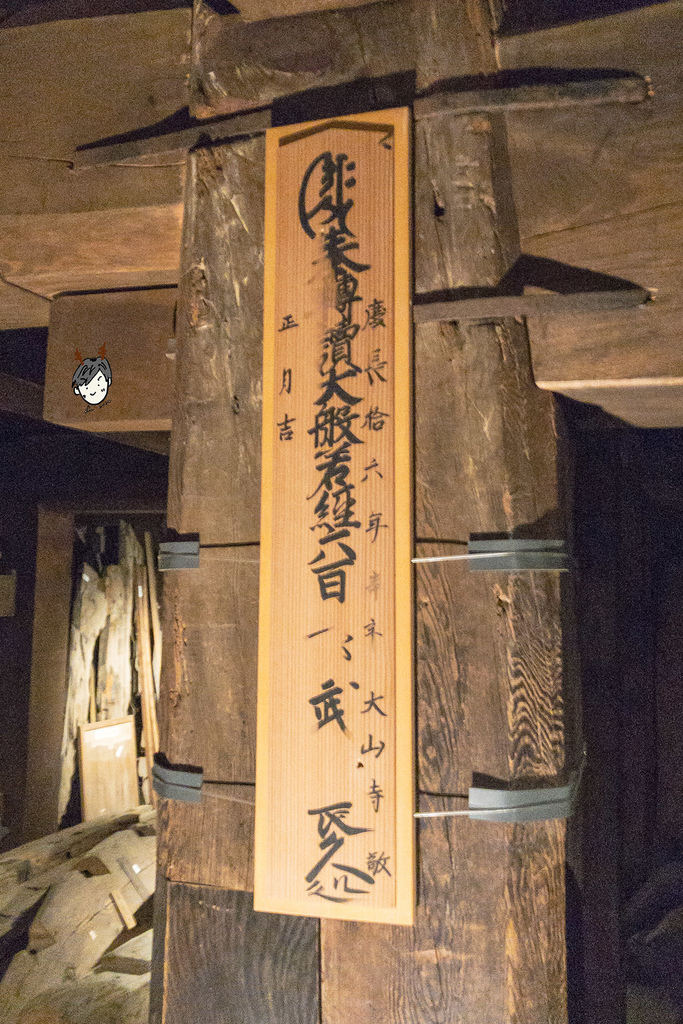 慶長拾六年辛亥大山寺敬
奉轉讀大般若経六百 武 長久処
正月吉